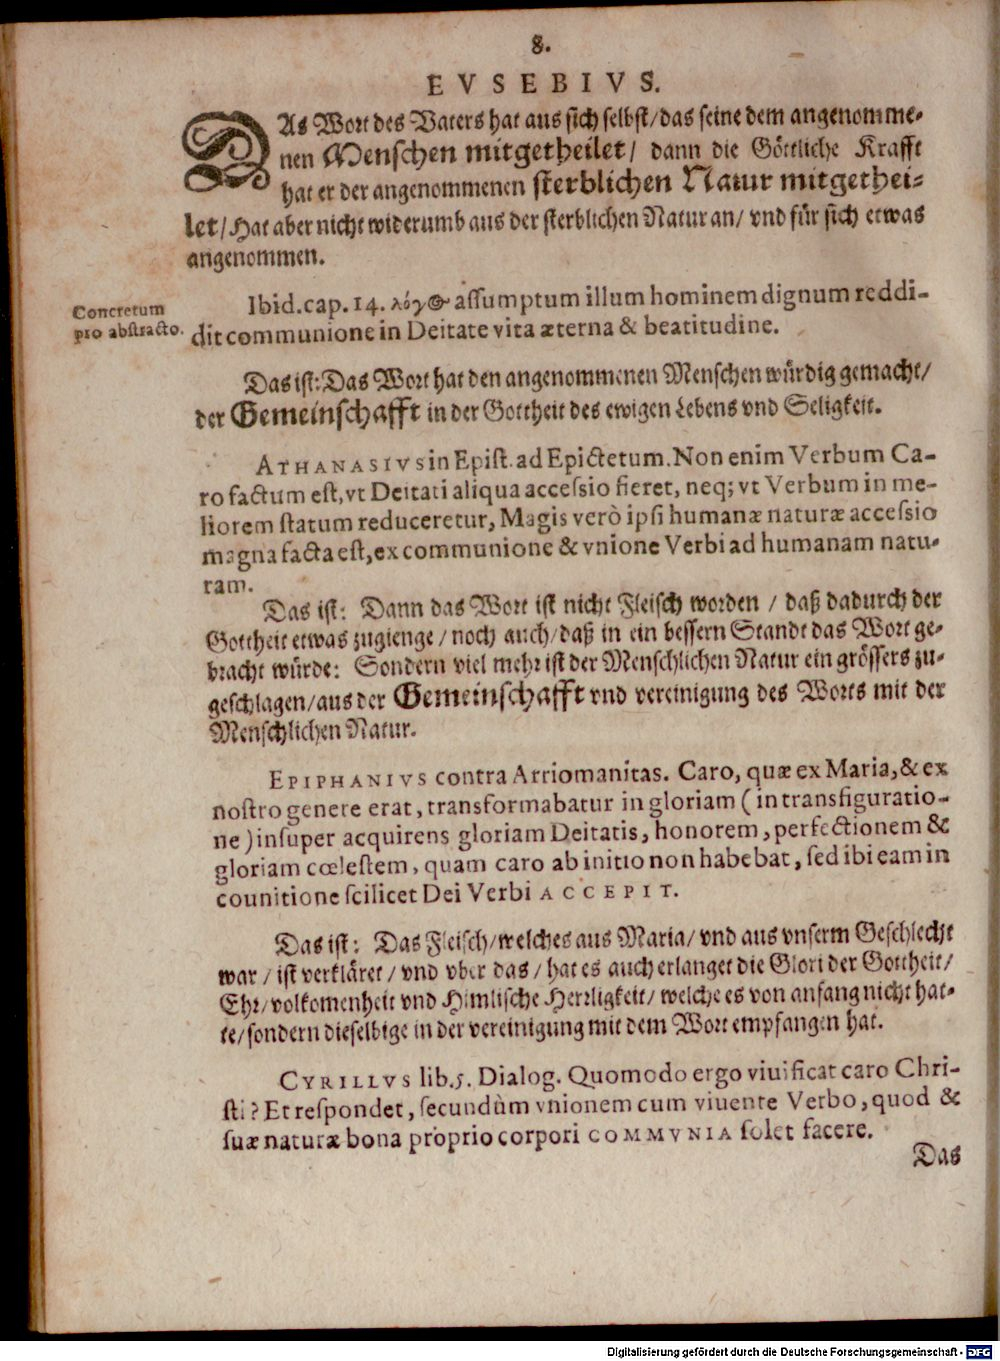 8.
EVSEBIVS.
DAs Wort des Vaters hat aus sich selbst/das seine dem angenomme-
nen Menschen mitgetheilet/ dann die Göttliche Krafft
hat er der angenommenen sterblichen Natur mitgethei-
let/Hat aber nicht widerumb aus der sterblichen Natur an/ vnd für sich etwas
angenommen.
Concretum
pro abstracto.
Ibid. cap. 14. λόγος assumptum illum hominem dignum reddi-
dit communione in Deitate vita æterna & beatitudine.
Das ist: Das Wort hat den angenommenen Menschen würdig gemacht/
der Gemeinschafft in der Gottheit des ewigen Lebens vnd Seligkeit.
ATHANASIVS in Epist. ad Epictetum. Non enim Verbum Ca-
ro factum est, vt Deitati aliqua accessio fieret, neq; vt Verbum in me-
liorem statum reduceretur, Magis verò ipsi humanæ naturæ accessio
magna facta est, ex communione & vnione Verbi ad humanam natu-
ram.
Das ist: Dann das Wort ist nicht Fleisch worden / daß dadurch der
Gottheit etwas zugienge/noch auch/daß in ein bessern Standt das Wort ge-
bracht würde: Sondern viel mehr ist der Menschlichen Natur ein grössers zu-
geschlagen/aus der Gemeinschafft vnd vereinigung des Worts mit der
Menschlichen Natur.
EPIPHANIVS contra Arriomanitas. Caro, quæ ex Maria, & ex
nostro genere erat, transformabatur in gloriam (in transfiguratio-
ne) insuper acquirens gloriam Deitatis, honorem, perfectionem &
gloriam cœlestem, quam caro ab initio non habebat, sed ibi eam in
counitione scilicet Dei Verbi ACCEPIT.
Das ist: Das Fleisch/welches aus Maria/ vnd aus vnserm Geschlecht
war/ist verkläret/vnd vber das/hat es auch erlanget die Glori der Gottheit/
Ehr/volkomenheit vnd Himlische Herrligkeit/welche es von anfang nicht hat-
te/sondern dieselbige in der vereinigung mit dem Wort empfangen hat.
CYRILLVS lib. 5. Dialog. Quomodo ergo viuificat caro Chri-
sti? Et respondet, secundùm vnionem cum viuente Verbo, quod &
suæ naturæ bona proprio corpori COMMVNIA solet facere.
Das
Digitalisierung gefördert durch die Deutsche Forschungsgemeinschaft - DFG